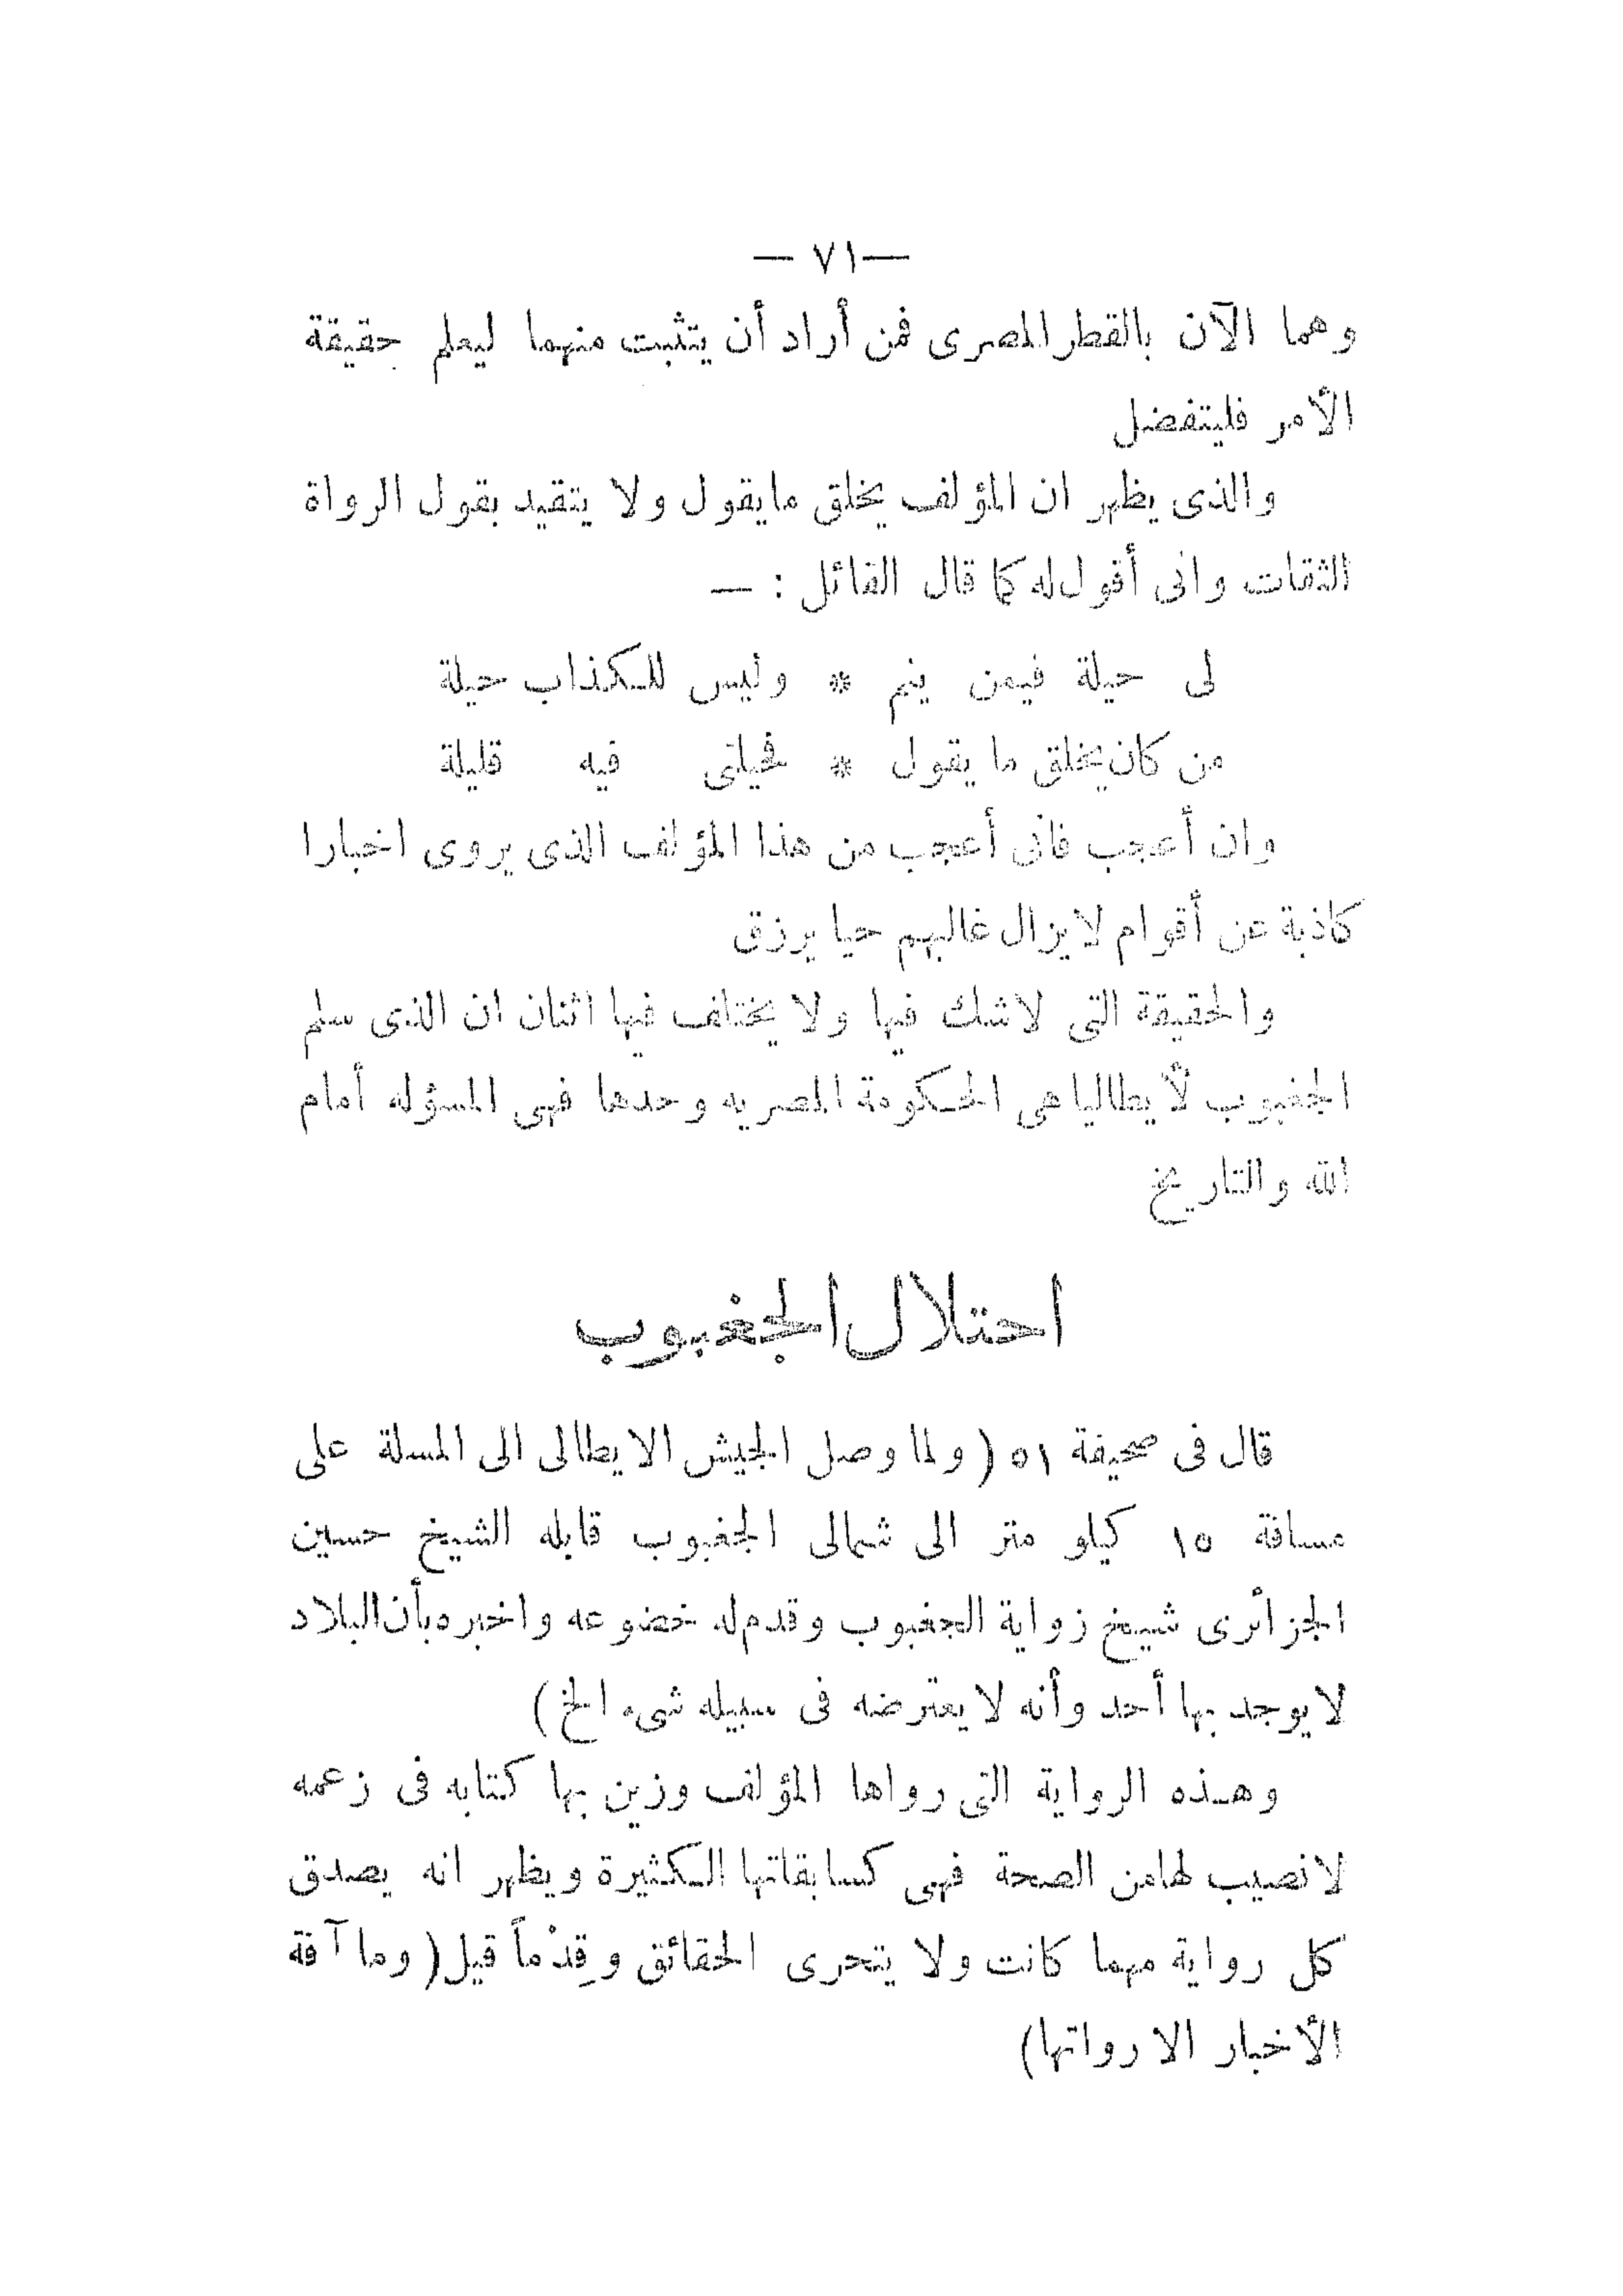 — ٧١ —
وهما الآن بالقطر المصرى فمن أراد أن يتثبت منهما ليعلم حقيقة
الأمر فليتفضل
والذى يظهر ان المؤلف يخلق مايقول ولا يتقيد بقول الرواة
الثقات وانى أقول له كما قال القائل : —
لى حيلة فيمن ينم * وليس للكذاب حيلة
من كان يخلق ما يقول * فحيلتى فيه قليلة
وان أعجب فانى أعجب من هذا المؤلف الذى يروى اخبارا
كاذبة عن أقوام لا يزال غالبهم حيا يرزق
والحقيقة التى لاشك فيها ولا يختلف فيها اثنان ان الذى سلم
الجغبوب لأيطاليا هى الحكومة المصريه وحدها فهى المسؤله أمام
الله والتاريخ
احتلال الجغبوب
قال فى صحيفة ٥١ ( ولما وصل الجيش الايطالى الى المسلة على
مسافة ١٥ كيلو متر الى شمالى الجغبوب قابله الشيخ حسين
الجزائرى شيخ زواية الجغبوب وقدم له خضوعه واخبره بأن البلاد
لا يوجد بها أحد وأنه لا يعترضه فى سبيله شىء الخ )
وهذه الرواية التى رواها المؤلف وزين بها كتابه فى زعمه
لا نصيب لها من الصحة فهى كسابقاتها الكثيرة ويظهر انه يصدق
كل رواية مهما كانت ولا يتحرى الحقائق وقِدْماً قيل ( وما آفة
الأخبار الا رواتها )